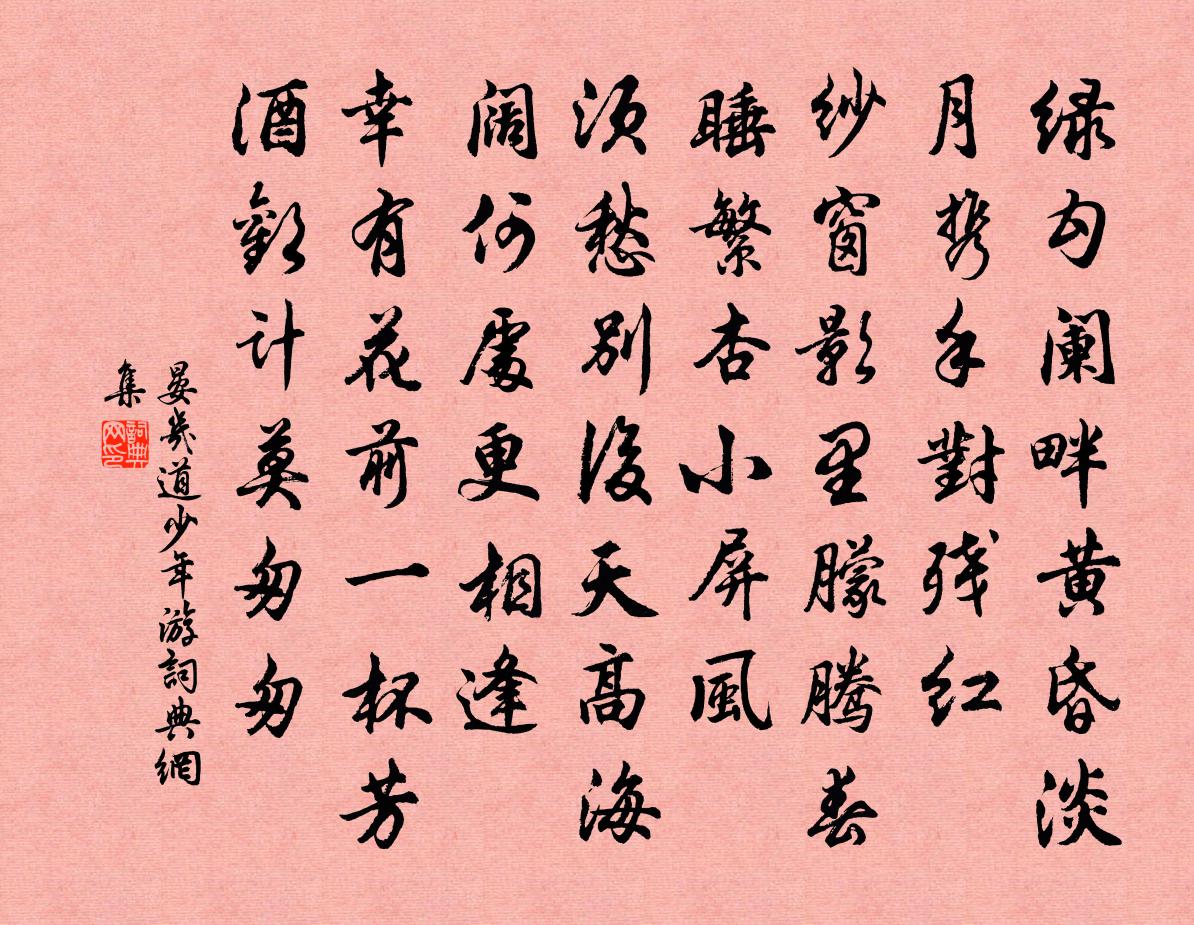 绿勾阑畔黄昏淡
月携手對残红
纱窗影里朦腾春
睡繁杏小屏風
须愁別後天高海
阔何處更相逢
幸有花前一杯芳
酒歡计莫匆匆
晏幾道少年游詞典網
集
詞典
网印